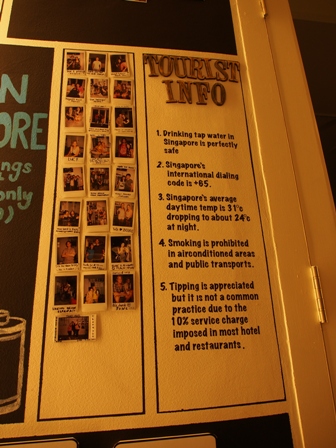 N
ORE
ngs
only
TOURIST
INFO
1. Drinking tap water in
Singapore is perfectly
safe
2. Singapore's
international dialing
code is +65.
3. Singapore's average
daytime temp is 31°c
dropping to about 24°c
at night.
4. Smoking is prohibited
in airconditioned areas
and public transports.
5. Tipping is appreciated
but it is not a common
practice due to the
10% service charge
imposed in most hotel
and restaurants.